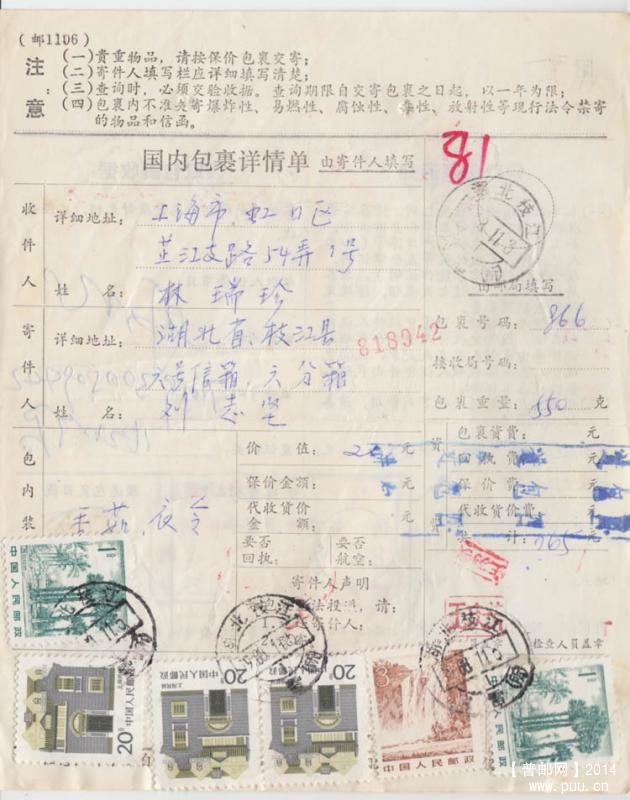 (邮1106)
注意:
(一)贵重物品,请按保价包裹交寄;
(二)寄件人填写栏应详细填写清楚;
(三)查询时,必须交验收据。查询期限自交寄包裹之日起,以一年为限;
(四)包裹内不准夹寄爆炸性、易燃性、腐蚀性、毒性、放射性等现行法令禁寄
的物品和信函。
国内包裹详情单 由寄件人填写
81
湖北枝江
由邮局填写
收件人
详细地址: 上海市,虹口区
芷江支路54弄1号
姓名: 林瑞珍
寄件人
详细地址: 湖北省,枝江县
六号信箱,六分箱
姓名: 刘志
818942
包裹号码: 866
接收局号码:
包裹重量: 550 克
包内装
香菇,衣
价值: 元
保价金额: 元
代收货价金额: 元
资费
包裹资费: 元
回执费: 元
保价费: 元
代收货价费: 元
共计: 元
要否回执:
要否航空:
寄件人声明
法投递,请:
寄件人:
检查人员盖章
湖北枝江
湖北枝江
湖北枝江
中国人民邮政
1分
20分 中国人民邮政 上海民居
20分 中国人民邮政 上海民居
20分 中国人民邮政 上海民居
3分
中国人民邮政
1分
中国人民邮政
【普邮网】2014
www.puu.cn